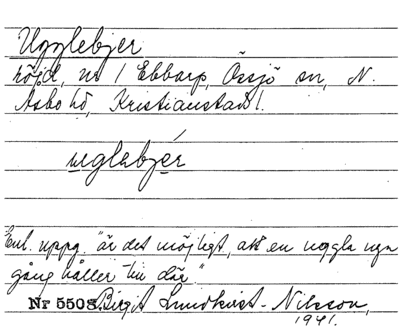 Ugglebjer
höjd, nr 1 Ebbarp, Össjö sn, N.
Åsbo hd, Kristianstad l.
uglabjér
Enl. uppg. "är det möjligt, att en uggla ngn
gång håller till där."
Nr 5508. Birgit Lundkvist-Nilsson,
1941.